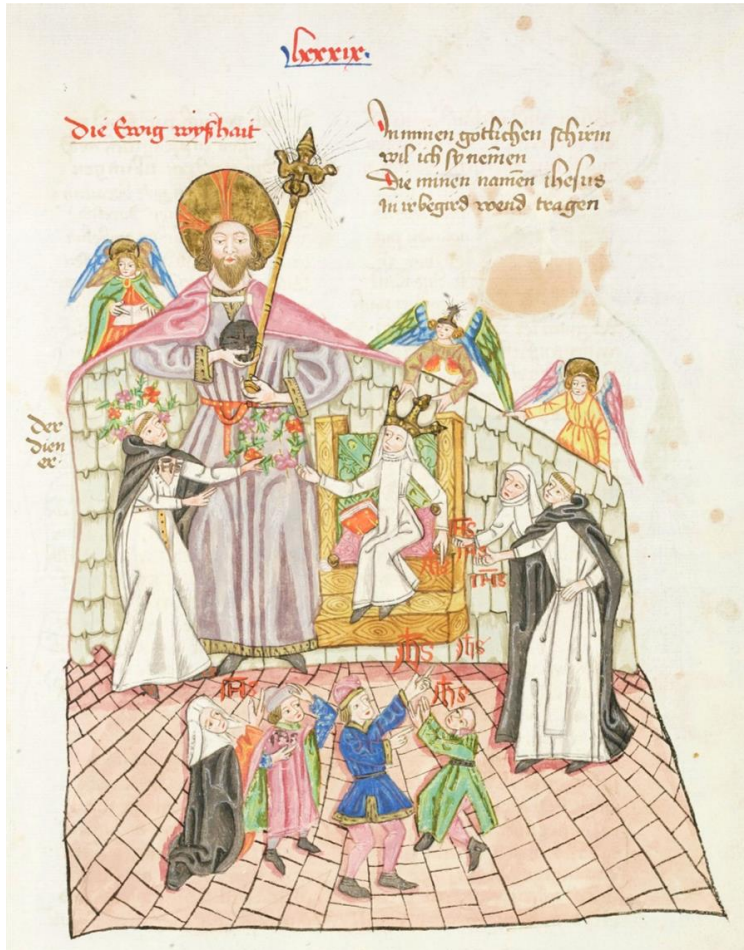 lxxxix.
Die Ewig wyßhait
In minen gotlichen schirm
wil ich sy nemen
Die minen namen ihesus
In ir begird wend tragen
der
dien
er.
IHS
IHS
IHS
IHS
IHS
ihs
ihs
IHS
ihs